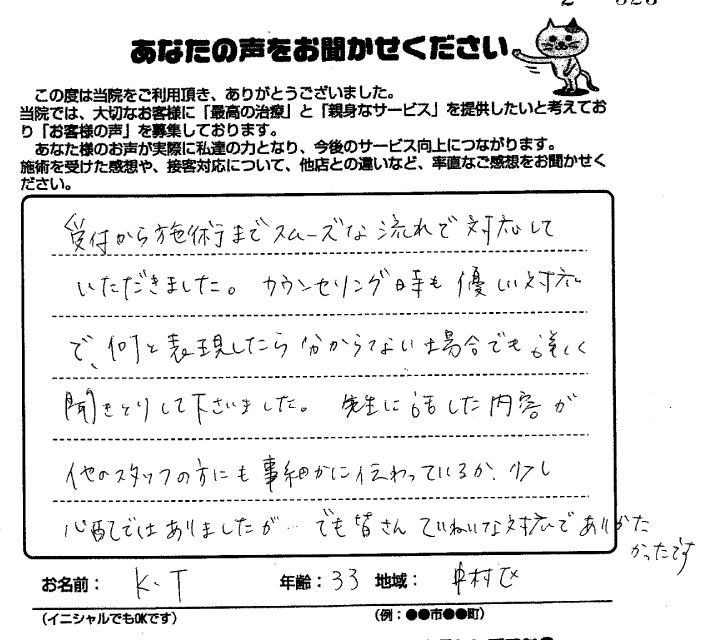 あなたの声をお聞かせください
この度は当院をご利用頂き、ありがとうございました。
当院では、大切なお客様に「最高の治療」と「親身なサービス」を提供したいと考えてお
り「お客様の声」を募集しております。
あなた様のお声が実際に私達の力となり、今後のサービス向上につながります。
施術を受けた感想や、接客対応について、他店との違いなど、率直なご感想をお聞かせく
ださい。
受付から施術までスムーズな流れで対応して
いただきました。カウンセリング時も優しい対応
で、何と表現したら分からない場合でも詳しく
聞きとりして下さいました。先生に話した内容が
他のスタッフの方にも事細かに伝わっているか、少し
心配ではありましたが…でも皆さんていねいな対応でありがた
かったです
お名前： K.T 年齢：33 地域： 中村区
（イニシャルでもOKです） （例：●●市●●町）